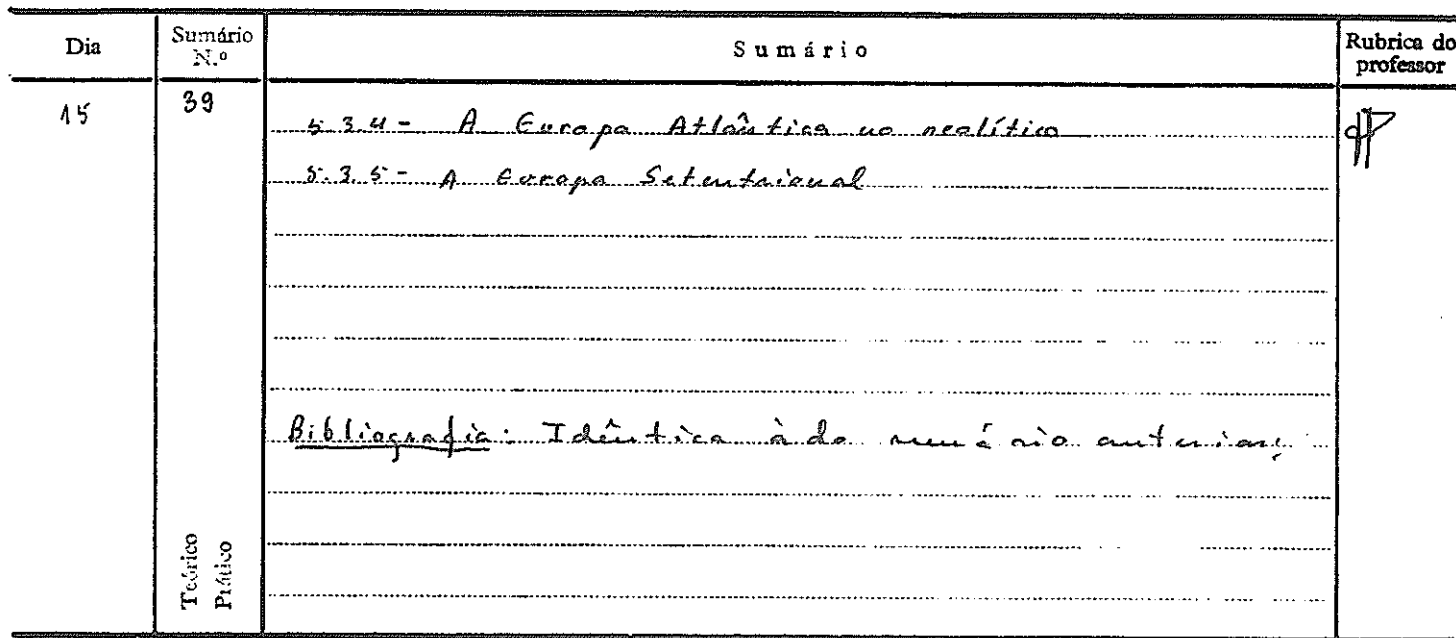 Dia
Sumário N.º
Sumário
Rubrica do professor
15
39
5.3.4 - A Europa Atlântica no neolítico
5.3.5 - A Europa Setentrional
Bibliografia: Idêntica à do sumário anterior;
Teórico
Prático